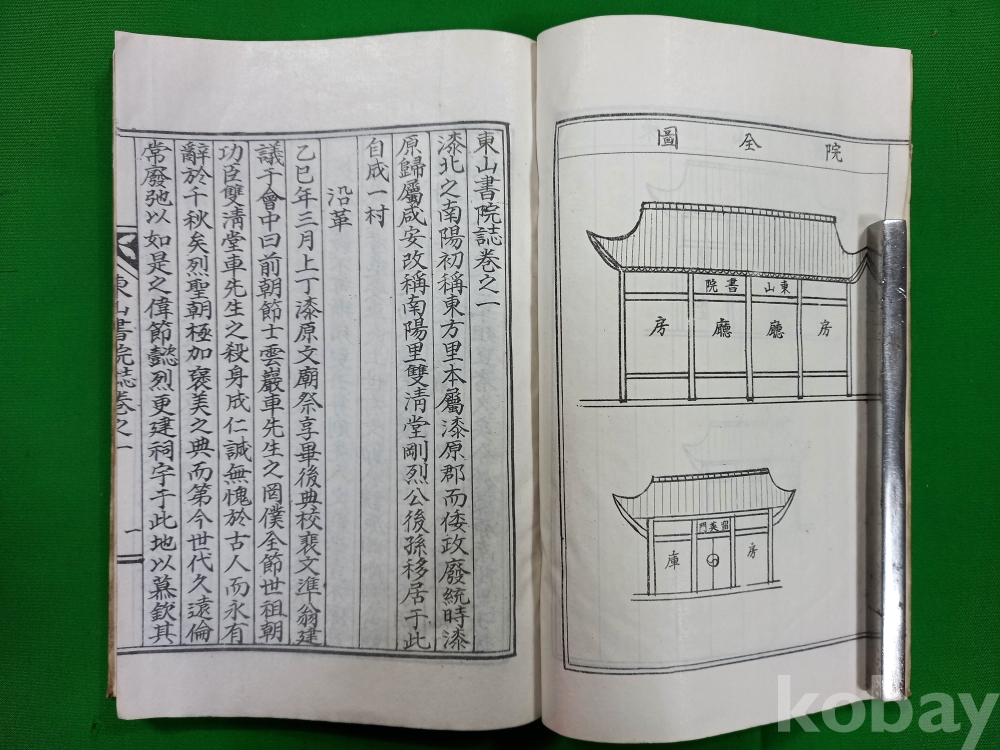 院全圖
東山書院
房廳廳房
門
庫房
東山書院誌卷之一
漆北之南陽初稱東方里本屬漆原郡而倭政廢統時漆
原歸屬咸安改稱南陽里雙淸堂剛烈公後孫移居于此
自成一村
沿革
乙巳年三月上丁漆原文廟祭享畢後典校裵文準翁建
議于會中曰前朝節士雲巖車先生之罔僕全節世祖朝
功臣雙淸堂車先生之殺身成仁誠無愧於古人而永有
辭於千秋矣烈聖朝極加褒美之典而第今世代久遠倫
常廢弛以如是之偉節懿烈更建祠宇于此地以慕欽其
東山書院誌卷之一
一
kobay